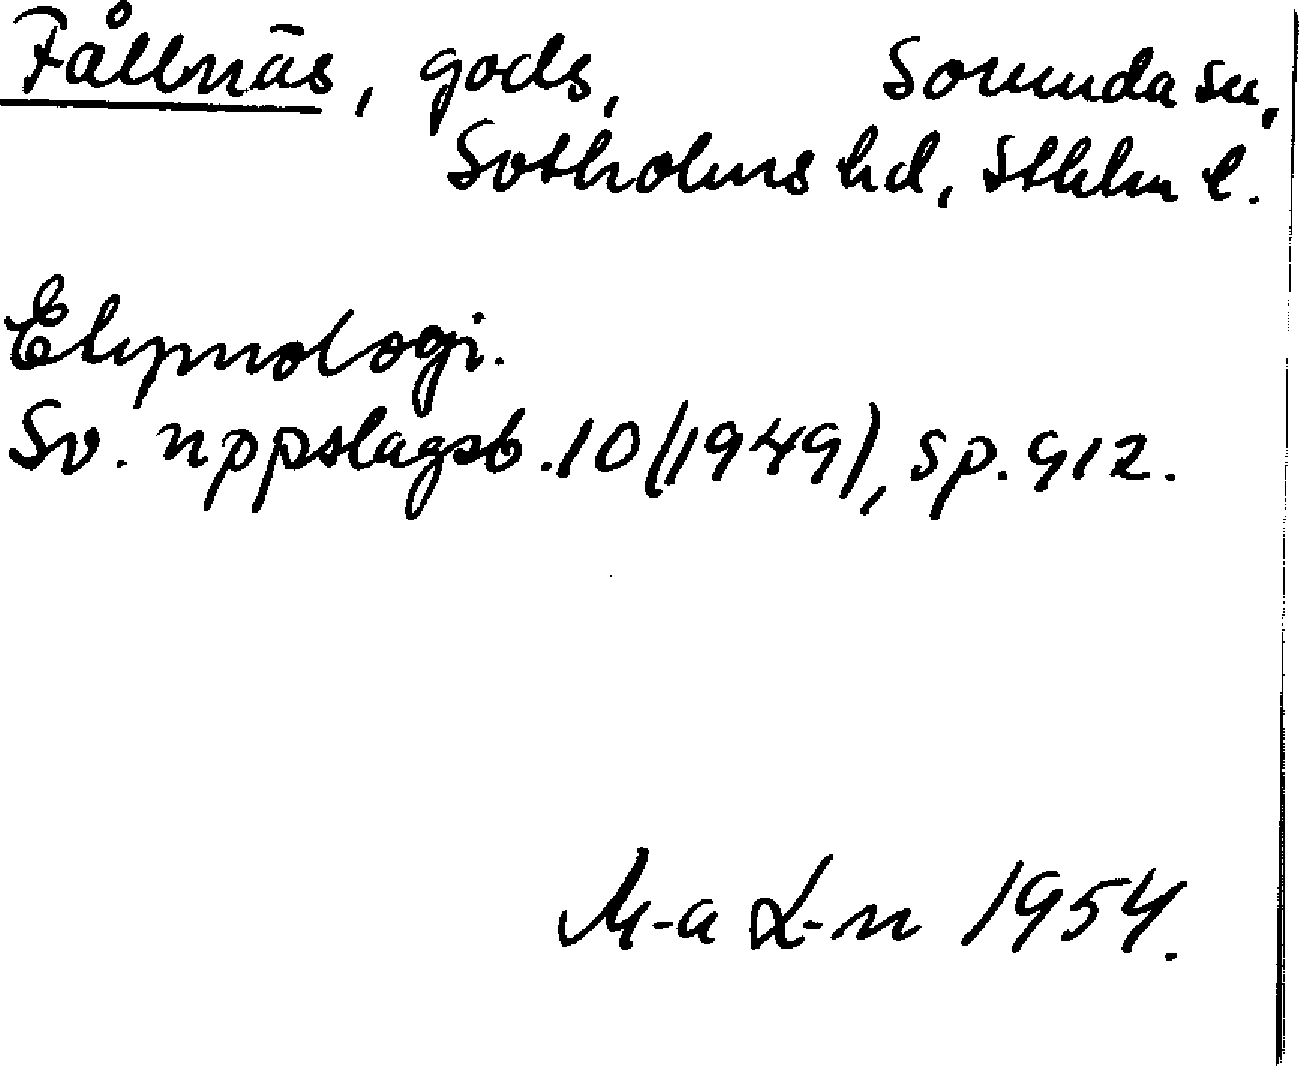 Fållnäs, gods, Sorunda sn,
Sotholms hd, Sthlm l.
Etymologi.
Sv. uppslagsb. 10 (1949), sp. 912.
M-a L-n 1954.